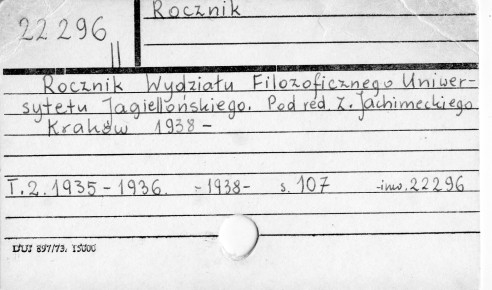 22296
II
Rocznik
Rocznik Wydziału Filozoficznego Uniwer-
sytetu Jagiellońskiego. Pod red. Z. Jachimeckiego
Kraków 1938 -
T.2. 1935 - 1936. - 1938 - s. 107 - inw. 22296
897/73.